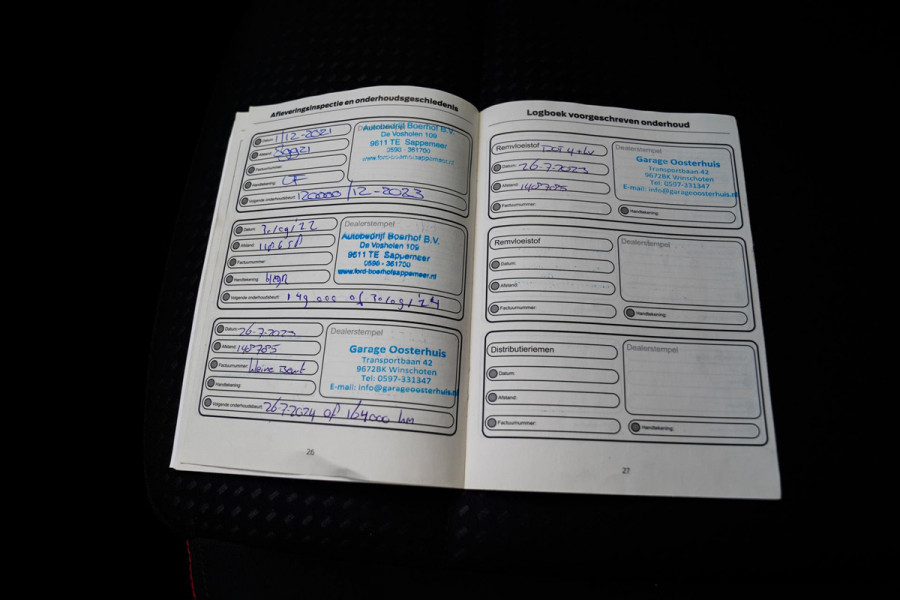 Afleveringsinspectie en onderhoudsgeschiedenis
Datum: 1/12-2021
Afstand:
Factuurnummer:
Handtekening:
Volgende onderhoudsbeurt: 120000 /12-2023
Autobedrijf Boerhof B.V.
De Vosholen 109
9611 TE Sappemeer
0598 - 361700
www.ford-boerhofsappemeer.nl
Datum:
Afstand:
Factuurnummer:
Handtekening:
Volgende onderhoudsbeurt: 149 000 of 30/09/'24
Dealerstempel
Autobedrijf Boerhof B.V.
De Vosholen 109
9611 TE Sappemeer
0598 - 361700
www.ford-boerhofsappemeer.nl
Datum: 26-7-2023
Afstand: 148785
Factuurnummer: kleine Beurt
Handtekening:
Volgende onderhoudsbeurt: 26-7-2024 of 164000 km
Dealerstempel
Garage Oosterhuis
Transportbaan 42
9672BK Winschoten
Tel: 0597-331347
E-mail: info@garageoosterhuis.nl
26
Logboek voorgeschreven onderhoud
Remvloeistof Dot 4 + LV
Datum: 26-7-2023
Afstand: 148785
Factuurnummer:
Dealerstempel
Garage Oosterhuis
Transportbaan 42
9672BK Winschoten
Tel: 0597-331347
E-mail: info@garageoosterhuis.nl
Handtekening:
Remvloeistof
Datum:
Afstand:
Factuurnummer:
Dealerstempel
Handtekening:
Distributieriemen
Datum:
Afstand:
Factuurnummer:
Dealerstempel
Handtekening:
27